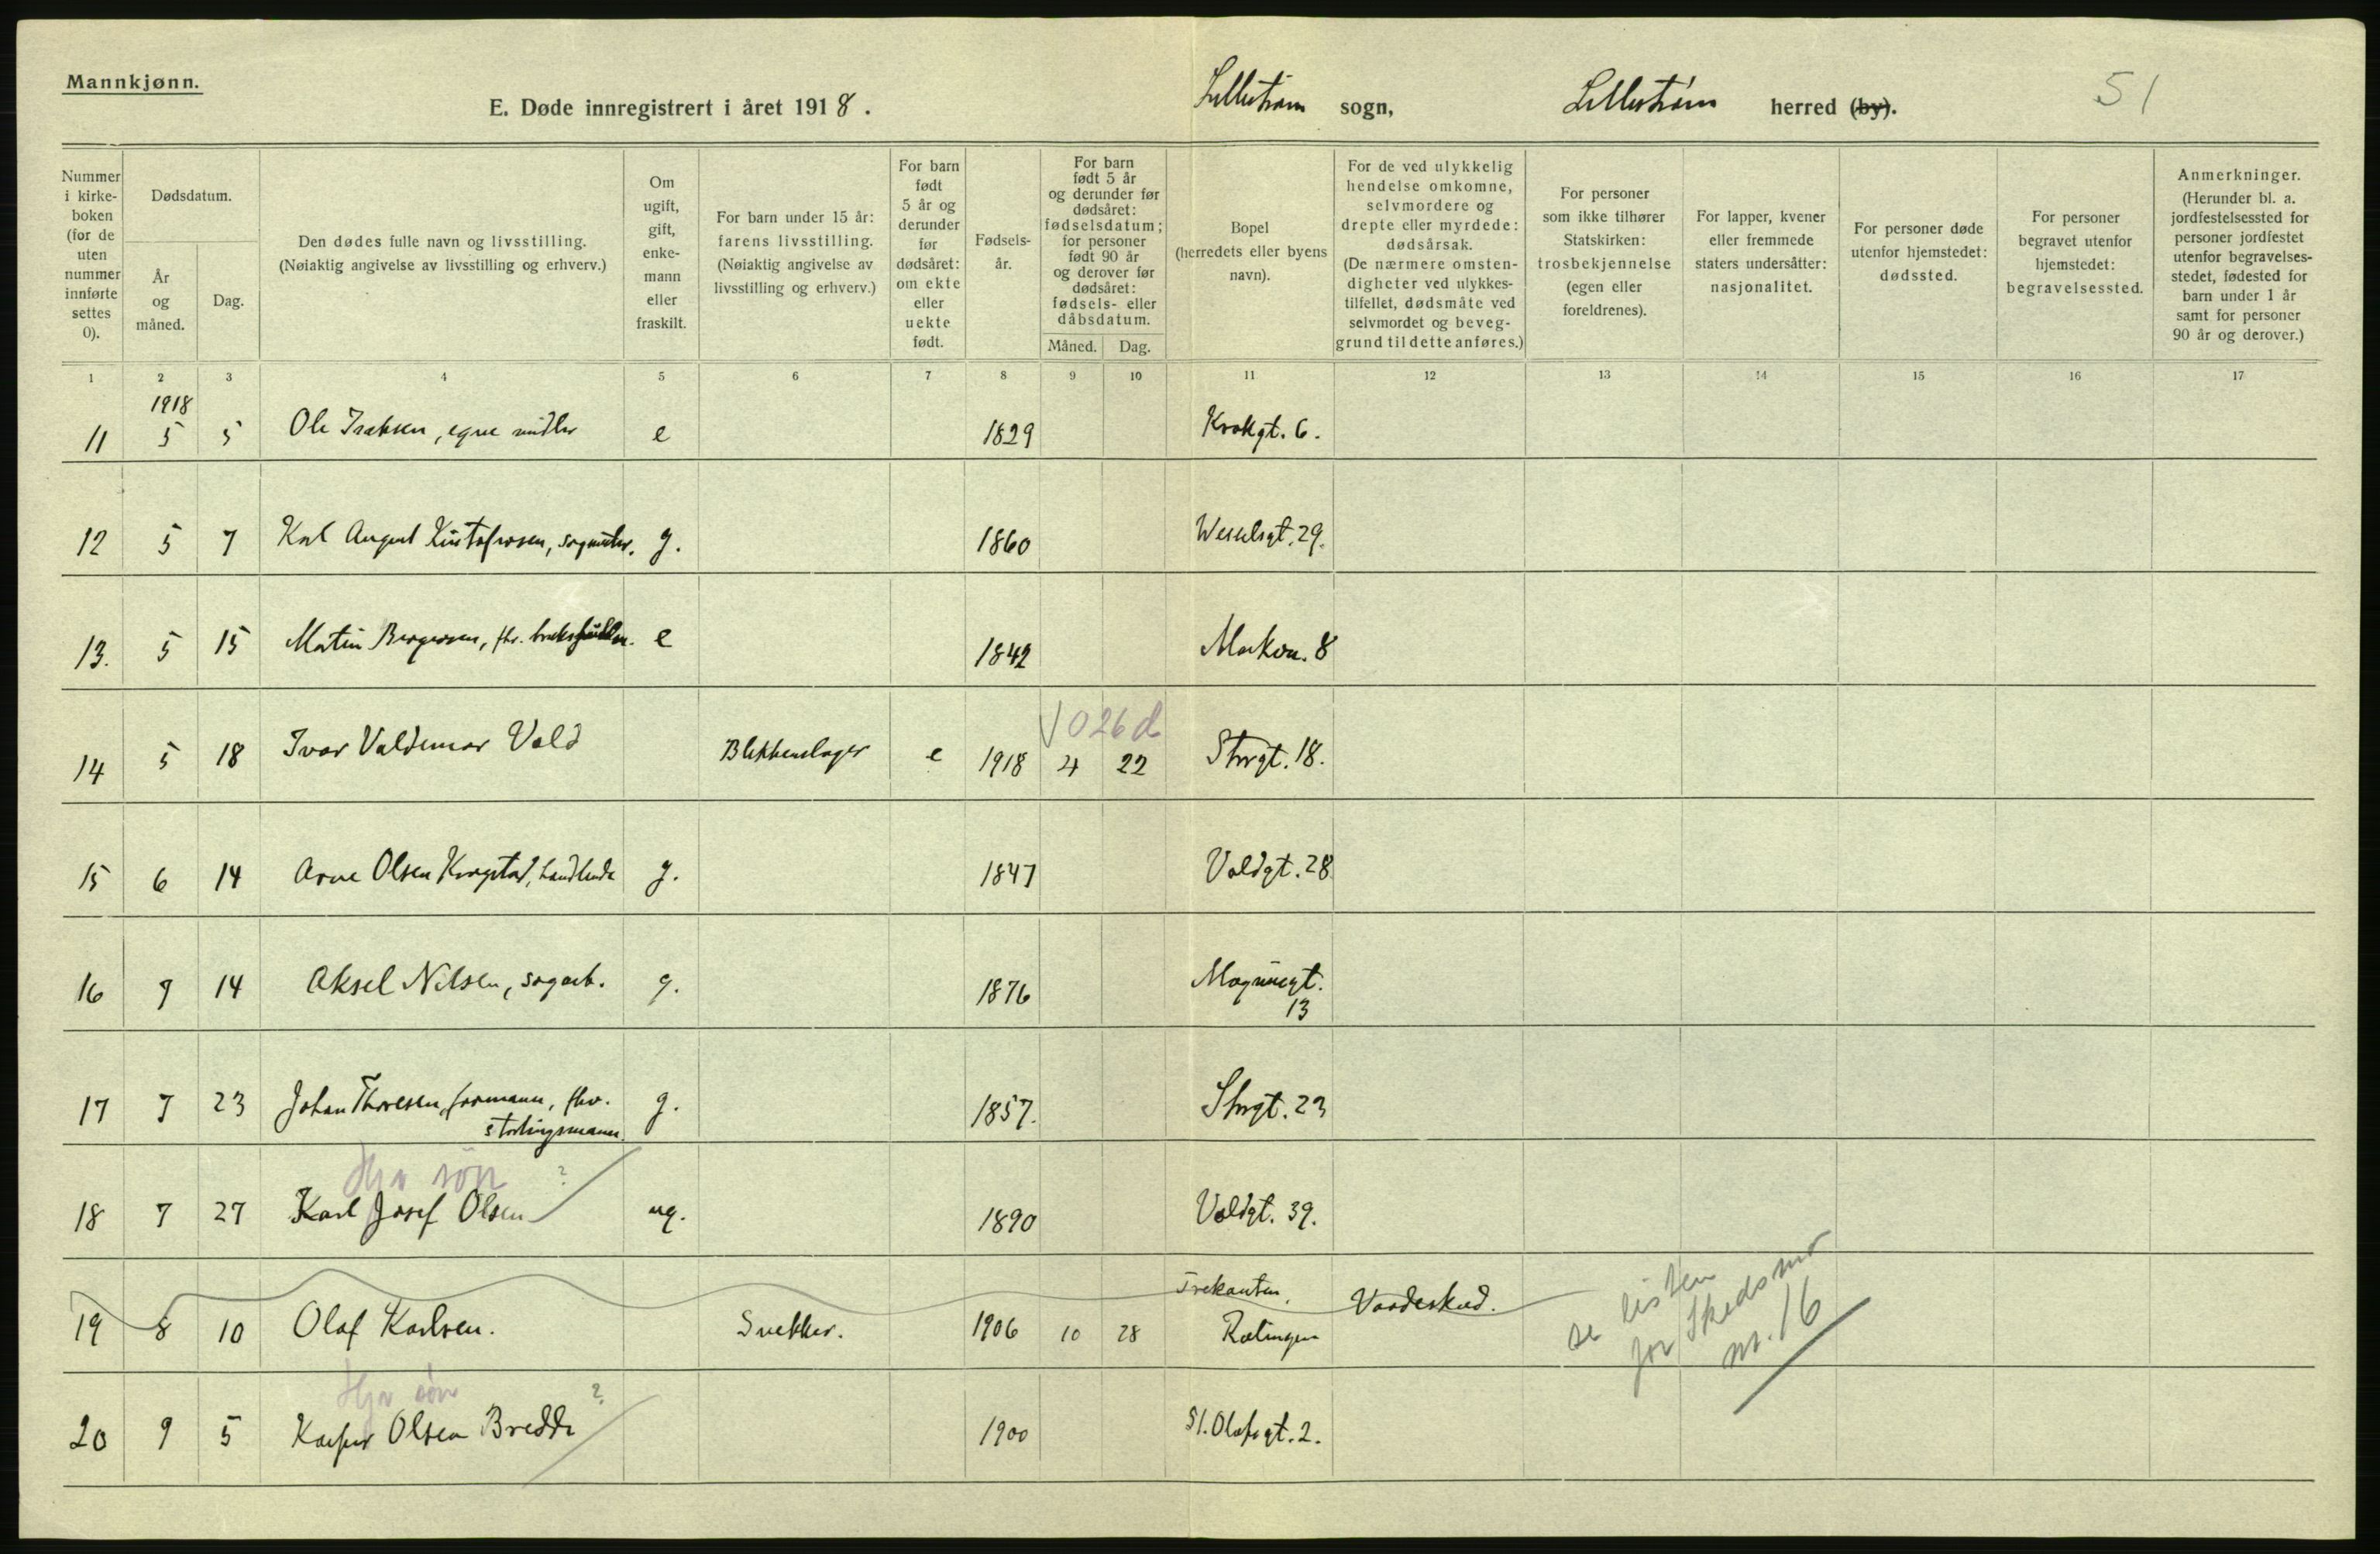 Mannkjønn.
E. Døde innregistrert i året 1918.
Lillestrøm sogn, Lillestrøm herred (by).
51
Nummer i kirke-boken (for de uten nummer innførte settes 0).
Dødsdatum.
År og måned.
Dag.
Den dødes fulle navn og livsstilling. (Nøiaktig angivelse av livsstilling og erhverv.)
Om ugift, gift, enke-mann eller fraskilt.
For barn under 15 år: farens livsstilling. (Nøiaktig angivelse av livsstilling og erhverv.)
For barn født 5 år og derunder før dødsåret: om ekte eller uekte født.
Fødsels-år.
For barn født 5 år og derunder før dødsåret: fødselsdatum; for personer født 90 år og derover før dødsåret: fødsels- eller dåbsdatum.
Måned. Dag.
Bopel (herredets eller byens navn).
For de ved ulykkelig hendelse omkomne, selvmordere og drepte eller myrdede: dødsårsak. (De nærmere omsten-digheter ved ulykkes-tilfellet, dødsmåte ved selvmordet og beveg-grund til dette anføres.)
For personer som ikke tilhører Statskirken: trosbekjennelse (egen eller foreldrenes).
For lapper, kvener eller fremmede staters undersåtter: nasjonalitet.
For personer døde utenfor hjemstedet: dødssted.
For personer begravet utenfor hjemstedet: begravelsessted.
Anmerkninger. (Herunder bl. a. jordfestelsessted for personer jordfestet utenfor begravelses-stedet, fødested for barn under 1 år samt for personer 90 år og derover.)
1 2 3 4 5 6 7 8 9 10 11 12 13 14 15 16 17
1918
11 5 5 Ole Isaksen, egne midler e 1829 Krokgt. 6.
12 5 7 Karl August Gustafsson, g. 1860 Wesselsgt. 29.
13. 5 15 Martin Bergersen, fhv. e 1842 8
14 5 18 Ivar Valdemar Vold Blikkenslager e 1918 4 22 Storgt. 18.
V 026 d
15 6 14 Arne Olsen handlende g. 1847 Voldgt. 28
16 7 14 Aksel Nilsen, sagarb. g. 1876 Magnusgt. 13
17 7 23 Johan Thoresen, formann, fhv. stortingsmann. g. 1857. Storgt. 23
Hjv søn ?
18 7 27 Karl Josef Olsen ug. 1890 Voldgt. 39.
19 8 10 Olaf Karlsen. Snekker. 1906 10 28 Trekanten, Rælingen Vaadeskud.
se listen for Skedsmo nr. 16
Hjv søn ?
20 9 5 Olsen Bredde 1900 St. Olafsgt. 2.